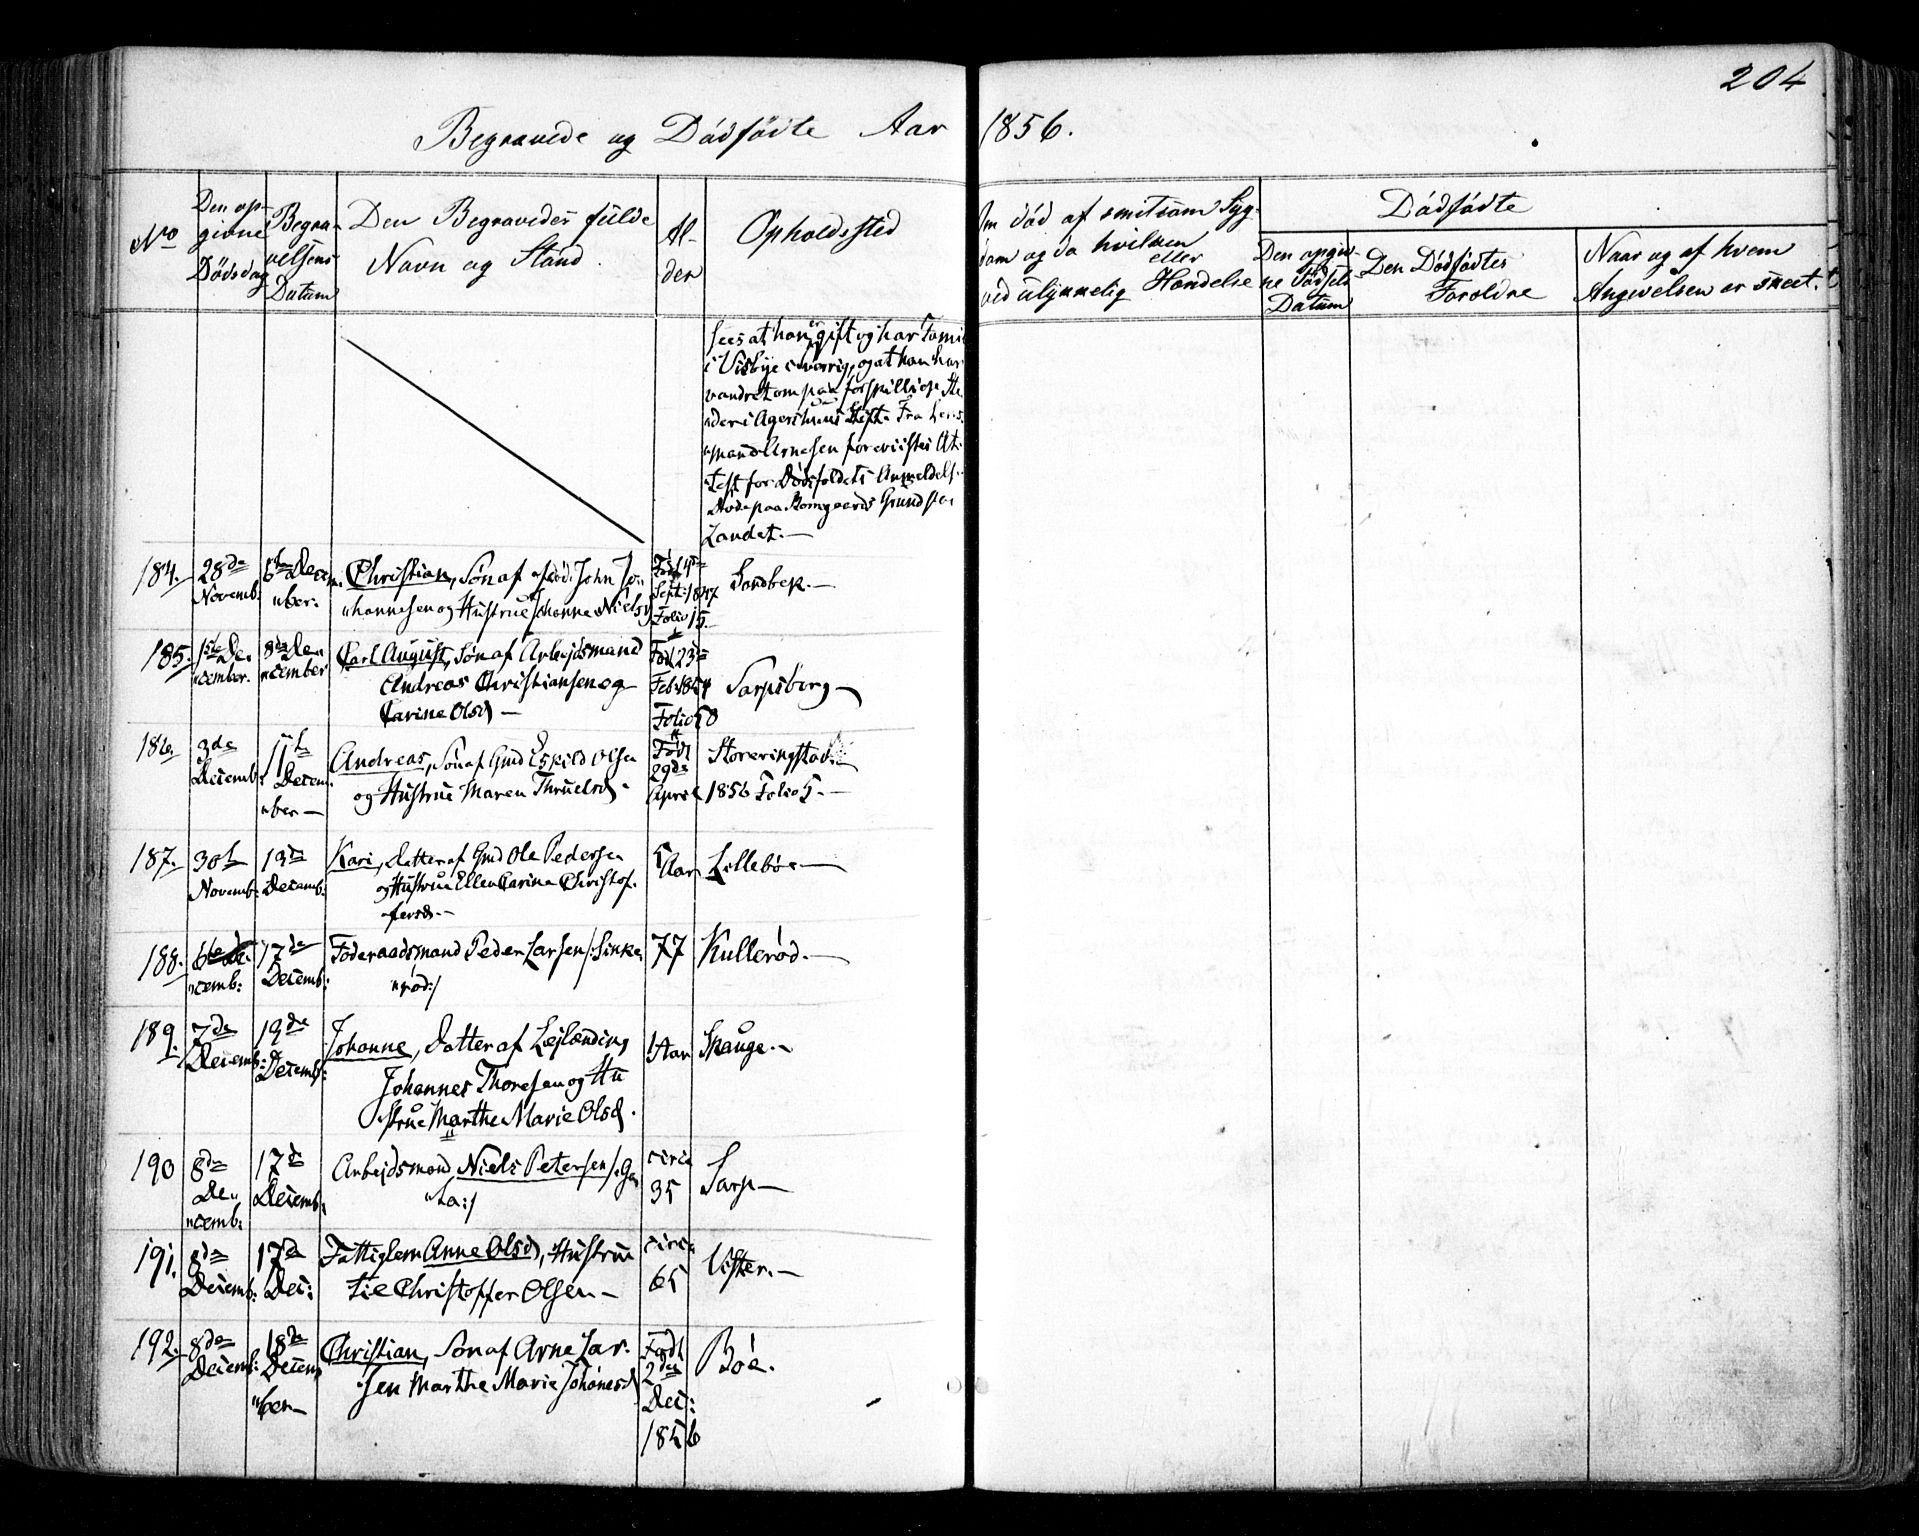 204
Begravede og Dödfödte Aar 1856.
No
Den op-
givne
Dödsdag
Begra-
velsens
Datum
Den Begravedes fulde
Navn og Stand.
Al-
der
Opholdssted
Om död af smitsom Syg-
dom og da hvilken
eller
ved ulykkelig Hændelse
Dödfödte
Den opgiv-
ne Födsels
Datum
Den Dödfödtes
Forældre
Naar og af hvem
Angivelsen er skeet.
sees at han er gift og har Fami
i Visbye i Sverrig, og at han har
vandret om paa forskjellige Ste
der i Agershuus Stift. Fra Lens
mand Arnesen foreviistes At-
test for Dödsfaldets Anmeldelse
Döde paa Borregaards Grund paa
Landet.—
184. 28de Novemb: 5te Decem ber. Christian, Sön af John Jo-
hannesen og Hustrue Johanne Nielsd Född 4de Sept: 1847 Folio 15. Sandbek.—
185. 1ste De cember. 8de De cember Carl August, Sön af Arbejdsmand
Andreas Christiansen og
Carine Olsd — Född 23de Feb: 1854 Folio 50 Sarpsborg—
186. 3de Decemb: 11te Decem ber— Andreas, Sön af Gmd Eskild Olsen
og Hustrue Maren Thruelsd. Född 29de April 1856 Folio 5.— Storeringstad.—
187. 30te Novemb: 13de Decemb: Kari, Datter af Gmd Ole Pedersen
og Hustrue Ellen Carine Christof-
fersd.— 5 Aar Lilleböe—
188. 6te De cemb: 17de Decemb: Föderaadsmand Peder Larsen /:Sinke
röd:/ 77 Kulleröd.—
189. 7de Decemb: 19de Decemb: Johanne, Datter af Lejlænding
Johannes Thoresen og Hu
strue Marthe Marie Olsd. 1 Aar Skauge.—
190 8de De cemb: 17de Decemb: Arbejdsmand Niels Petersen /:
:/ circa 35 Sarp—
191. 8de Decemb: 17de Dec: Fattiglem Anne Olsd, Hustrue
til Christoffer Olsen— circa 65 Vister.—
192. 8de Decemb: 18de Decem ber— Christian, Sön af Arne Lar-
sen Marthe Marie Johannesd Född 2den Dec: 1856 Böe.